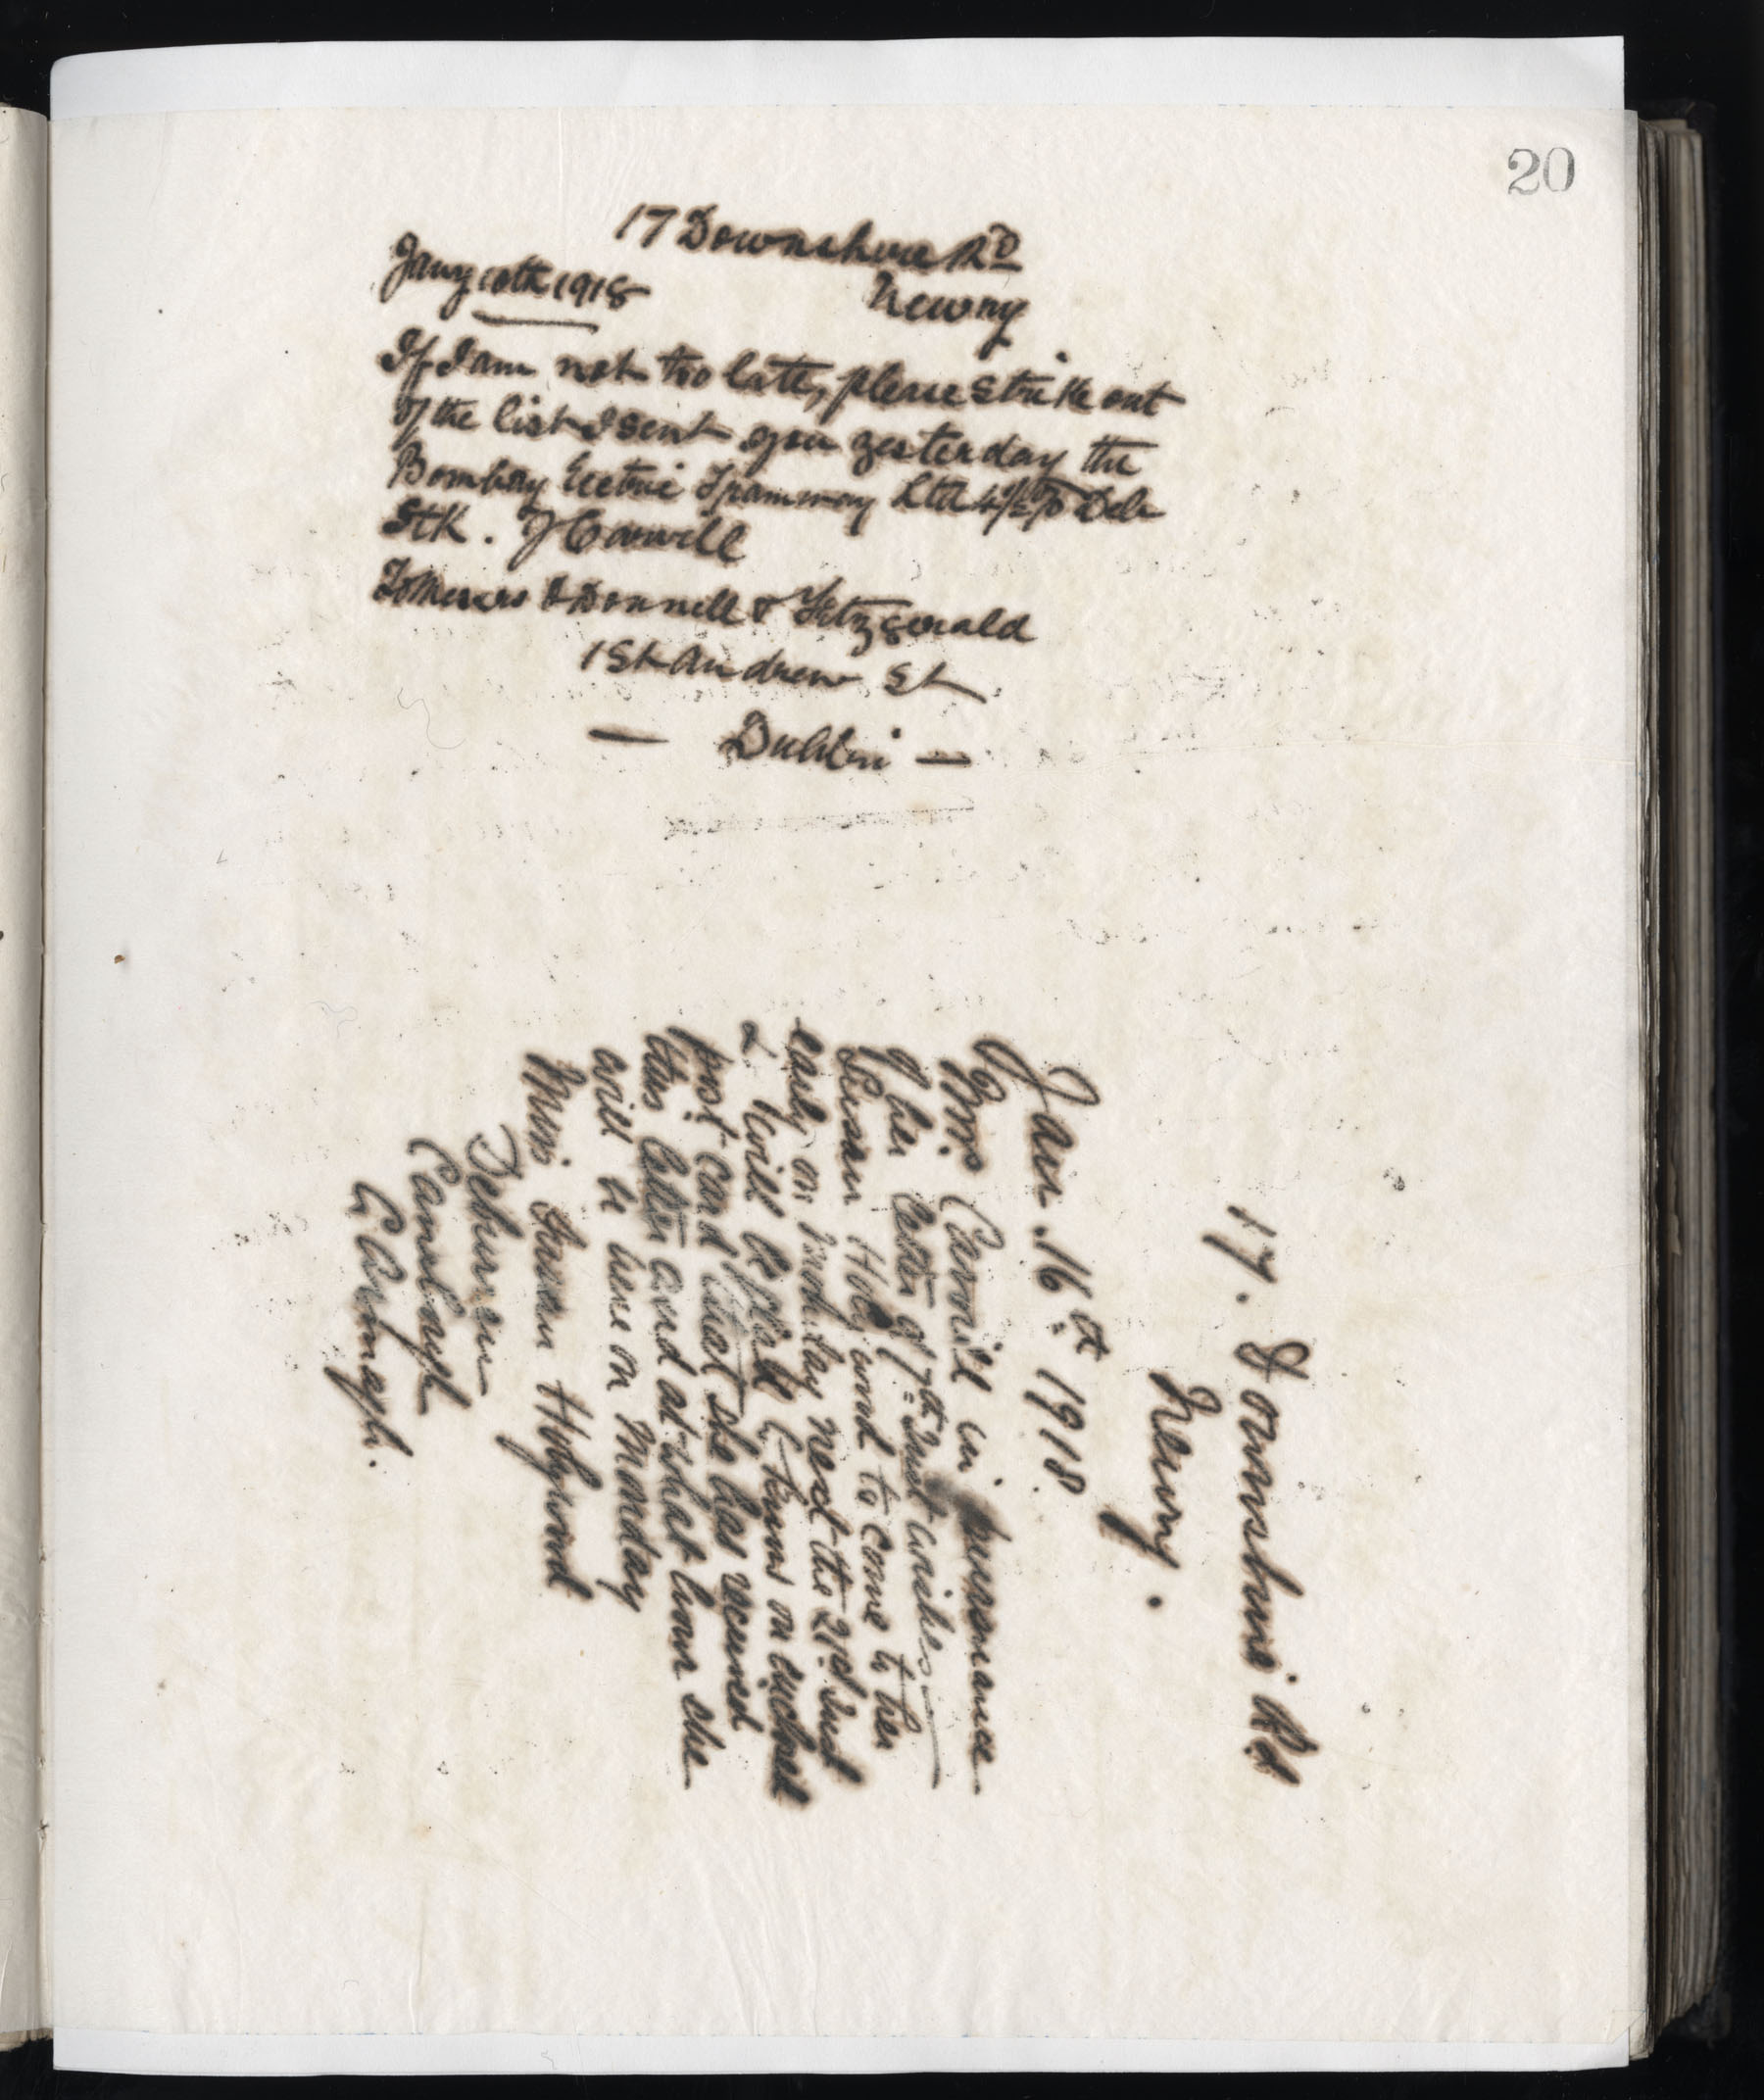 20
17 Downshire Rd
Jany 10th 1918
Newry
If I am not too late, please strike out
of the list I sent you yesterday the
Bombay Eectric Tramway Ltd 4½% Deb
Stk. J Carvill
To Messrs O'Donnell & Fitzgerald
1 St Andrew St
— Dublin —
17. Downshire Rd
Newry.
Jan. 16th 1918.
Mrs Carvill in pursuance
of her letter of 7th Inst wishes
Susan Holywood to come to her
early on Monday next the 21st Inst
& will be glad if returns on enclosed
post card that she has received
this letter and at what hour she
will be here on Monday
Miss Susan Holywood
Camlough
Co Armagh.